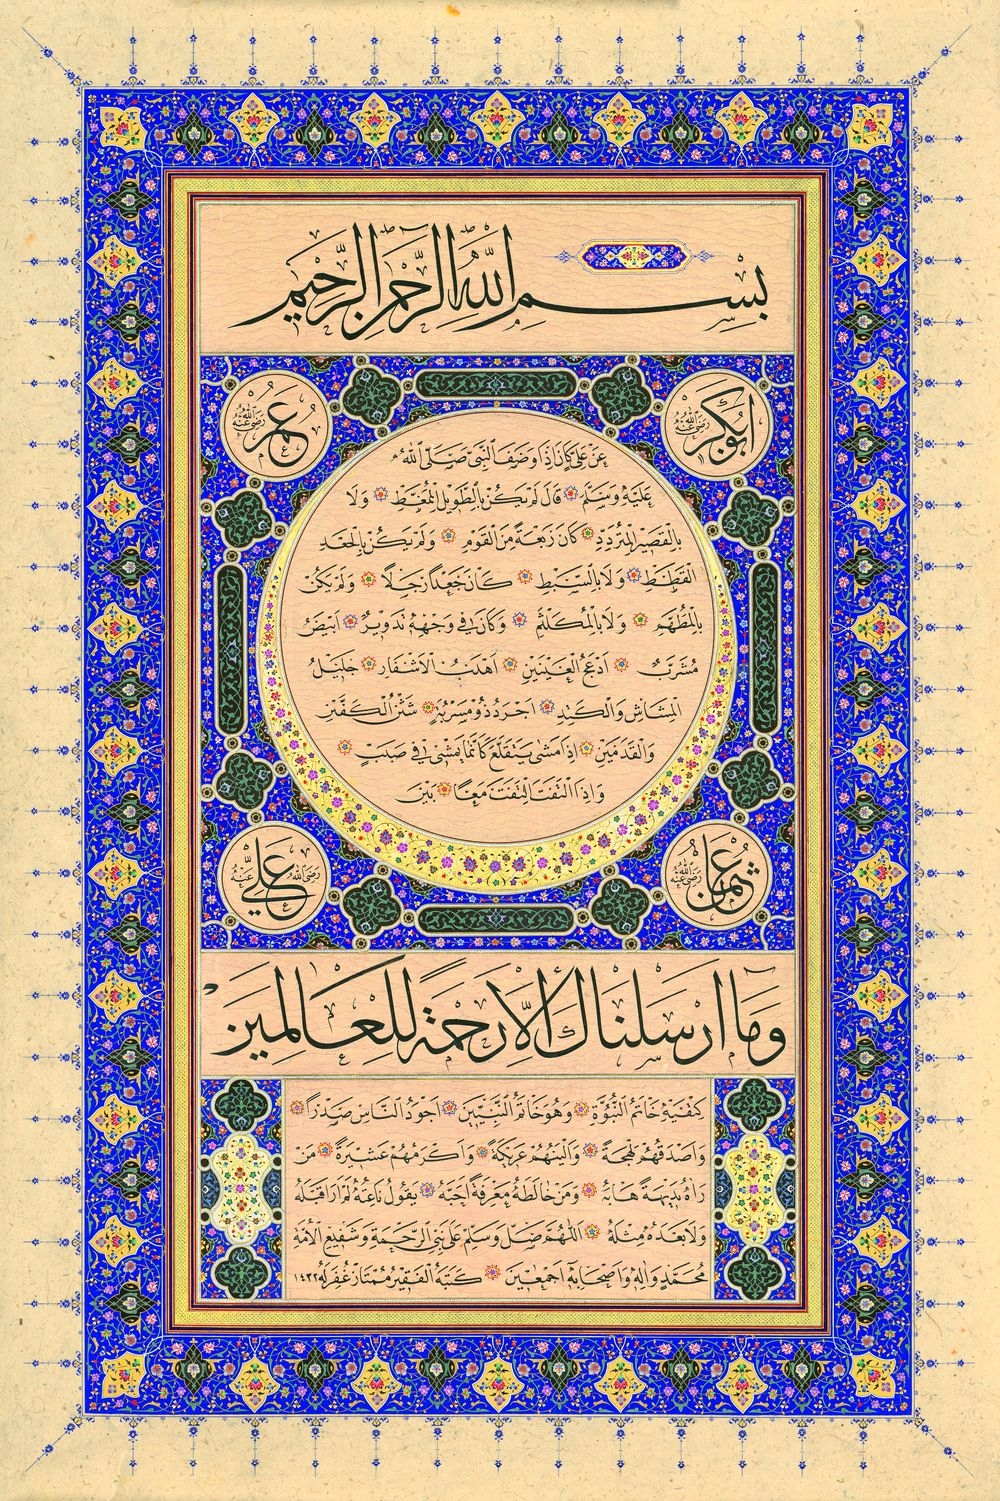 بِسْمِ اللّٰهِ الرَّحْمٰنِ الرَّحِيمِ
ابُو بَكْر رَضِيَ اللّٰهُ عَنْهُ
عُمَر رَضِيَ اللّٰهُ عَنْهُ
عَنْ عَلِيٍّ كَانَ اِذَا وَصَفَ النَّبِيَّ صَلَّى اللّٰهُ
عَلَيْهِ وَسَلَّمَ قَالَ لَمْ يَكُنْ بِالطَّوِيلِ الْمُمَغَّطِ وَلَا
بِالْقَصِيرِ الْمُتَرَدِّدِ كَانَ رَبْعَةً مِنَ الْقَوْمِ وَلَمْ يَكُنْ بِالْجَعْدِ
الْقَطَطِ وَلَا بِالسَّبْطِ كَانَ جَعْدًا رَجِلًا وَلَمْ يَكُنْ
بِالْمُطَهَّمِ وَلَا بِالْمُكَلْثَمِ وَكَانَ فِي وَجْهِهِ تَدْوِيرٌ اَبْيَضُ
مُشْرَبٌ اَدْعَجُ الْعَيْنَيْنِ اَهْدَبُ الْاَشْفَارِ جَلِيلُ
الْمُشَاشِ وَالْكَتَدِ اَجْرَدُ ذُو مَسْرُبَةٍ شَثْنُ الْكَفَّيْنِ
وَالْقَدَمَيْنِ اِذَا مَشَى يَتَقَلَّعُ كَاَنَّمَا يَمْشِي فِي صَبَبٍ
وَاِذَا الْتَفَتَ الْتَفَتَ مَعًا بَيْنَ
عُثْمَان رَضِيَ اللّٰهُ عَنْهُ
عَلِي رَضِيَ اللّٰهُ عَنْهُ
وَمَا اَرْسَلْنَاكَ اِلَّا رَحْمَةً لِلْعَالَمِينَ
كَتِفَيْهِ خَاتَمُ النُّبُوَّةِ وَهُوَ خَاتَمُ النَّبِيِّينَ اَجْوَدُ النَّاسِ صَدْرًا
وَاَصْدَقُهُمْ لَهْجَةً وَاَلْيَنُهُمْ عَرِيكَةً وَاَكْرَمُهُمْ عَشِيرَةً مَنْ
رَاٰهُ بَدِيهَةً هَابَهُ وَمَنْ خَالَطَهُ مَعْرِفَةً اَحَبَّهُ يَقُولُ نَاعِتُهُ لَمْ اَرَ قَبْلَهُ
وَلَا بَعْدَهُ مِثْلَهُ اَللّٰهُمَّ صَلِّ وَسَلِّمْ عَلَى نَبِيِّ الرَّحْمَةِ وَشَفِيعِ الْاُمَّةِ
مُحَمَّدٍ وَاٰلِهِ وَاَصْحَابِهِ اَجْمَعِينَ كَتَبَهُ الْفَقِيرُ مُمْتَاز غُفِرَ لَهُ ١٤٣٢